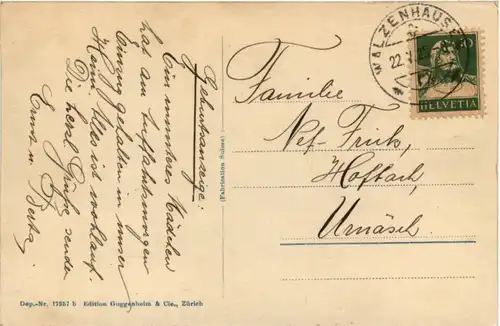 Geburtsanzeige:
Ein munteres Mädchen
hat am Auffahrtsmorgen
Einzug gehalten in unser
Heim. Alles ist wohlauf.
Die herzl. Grüße senden
Ernst u. Berta
(Fabrication Suisse)
WALZENHAUSEN
22.
HELVETIA
Familie
Nef-Frick,
Hofbach,
Urnäsch.
Dep.-Nr. 17357 b Edition Guggenheim & Cie., Zürich